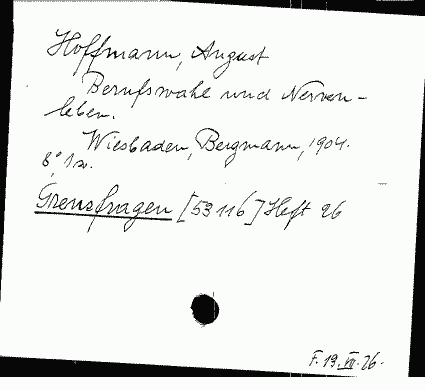 Hoffmann, August
Berufswahl und Nerven-
leben.
Wiesbaden, Bergmann, 1904.
8°,
Grenzfragen [53 116] Heft 26
F. 19. VII. 26.